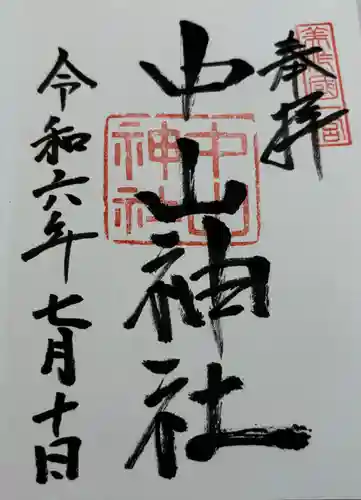 美作國一宮
奉拝
中山神社
中山神社
令和六年七月十日